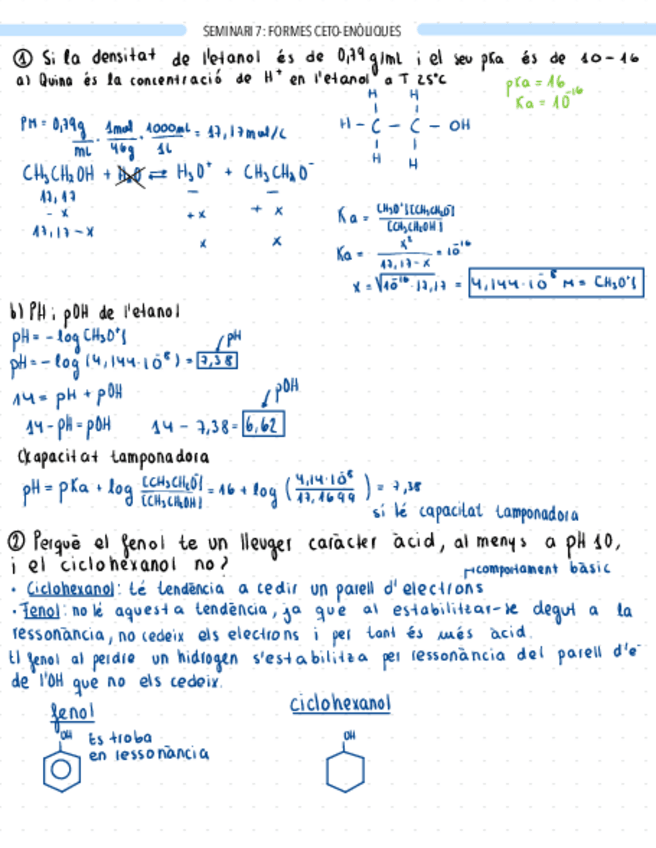 SEMINARI 7: FORMES CETO-ENÒLIQUES
① Si la densitat de l'etanol és de 0,79 g/ml i el seu pKa és de 10-16
a) Quina és la concentració de H⁺ en l'etanol a T 25°C
pKa = 16
Ka = 10⁻¹⁶
PM = 0,79g/mL · 1mol/46g · 1000mL/1L = 17,17mol/L
H H
H - C - C - OH
H H
CH₃CH₂OH + H₂O ⇌ H₃O⁺ + CH₃CH₂O⁻
17,17 - -
- x + x + x
17,17 - x x x
Ka = [H₃O⁺][CH₃CH₂O⁻]/[CH₃CH₂OH]
Ka = x²/17,17 - x = 10⁻¹⁶
x = √10⁻¹⁶ · 17,17 = 4,144·10⁻⁸ M = [H₃O⁺]
b) PH i pOH de l'etanol
pH = - log [H₃O⁺]
pH = - log (4,144·10⁻⁸) = 7,38 pH
14 = pH + pOH
14 - pH = pOH 14 - 7,38 = 6,62 pOH
c) Capacitat tamponadora
pH = pKa + log [CH₃CH₂O⁻]/[CH₃CH₂OH] = 16 + log (4,14·10⁻⁸/17,1699) = 7,38
sí té capacitat tamponadora
② Perquè el fenol te un lleuger caràcter àcid, al menys a pH 10,
i el ciclohexanol no?
comportament bàsic
· Ciclohexanol: té tendència a cedir un parell d'electrons
· Fenol: no té aquesta tendència, ja que al estabilitzar-se degut a la
ressonància, no cedeix els electrons i per tant és més àcid.
El fenol al perdre un hidrogen s'estabilitza per ressonància del parell d'e⁻
de l'OH que no els cedeix.
fenol
ciclohexanol
OH
Es troba
en ressonància
OH